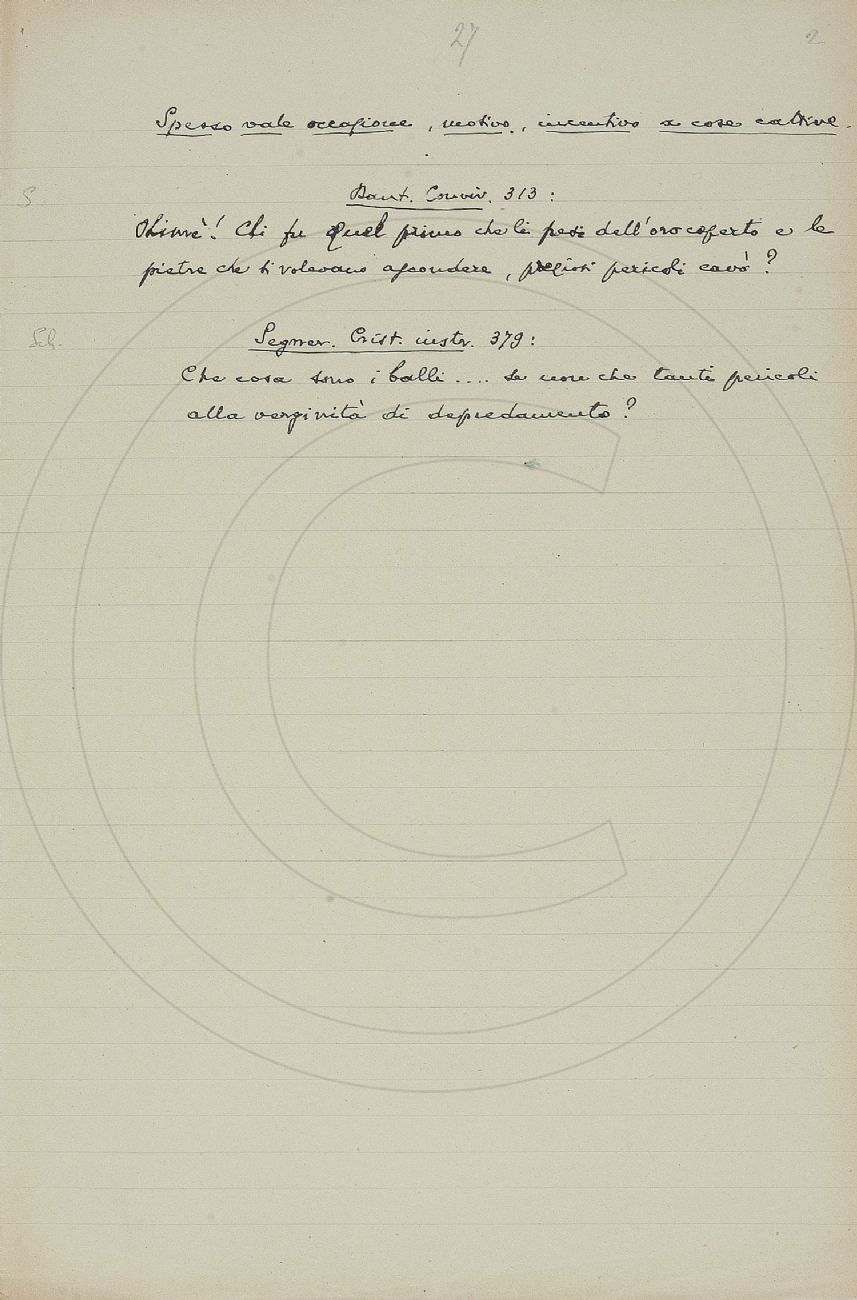 27
2
Spesso vale occasione, motivo, incentivo a cose cattive.
S.
Dant. Conviv. 313:
Ohimè! Chi fu quel primo che li pesi dell'oro coperto e le
pietre che si voleano ascondere, preziosi pericoli cavò?
Sch.
Segner. Crist. instr. 379:
Che cosa sono i balli .... se non che tanti pericoli
alla verginità di depredamento?